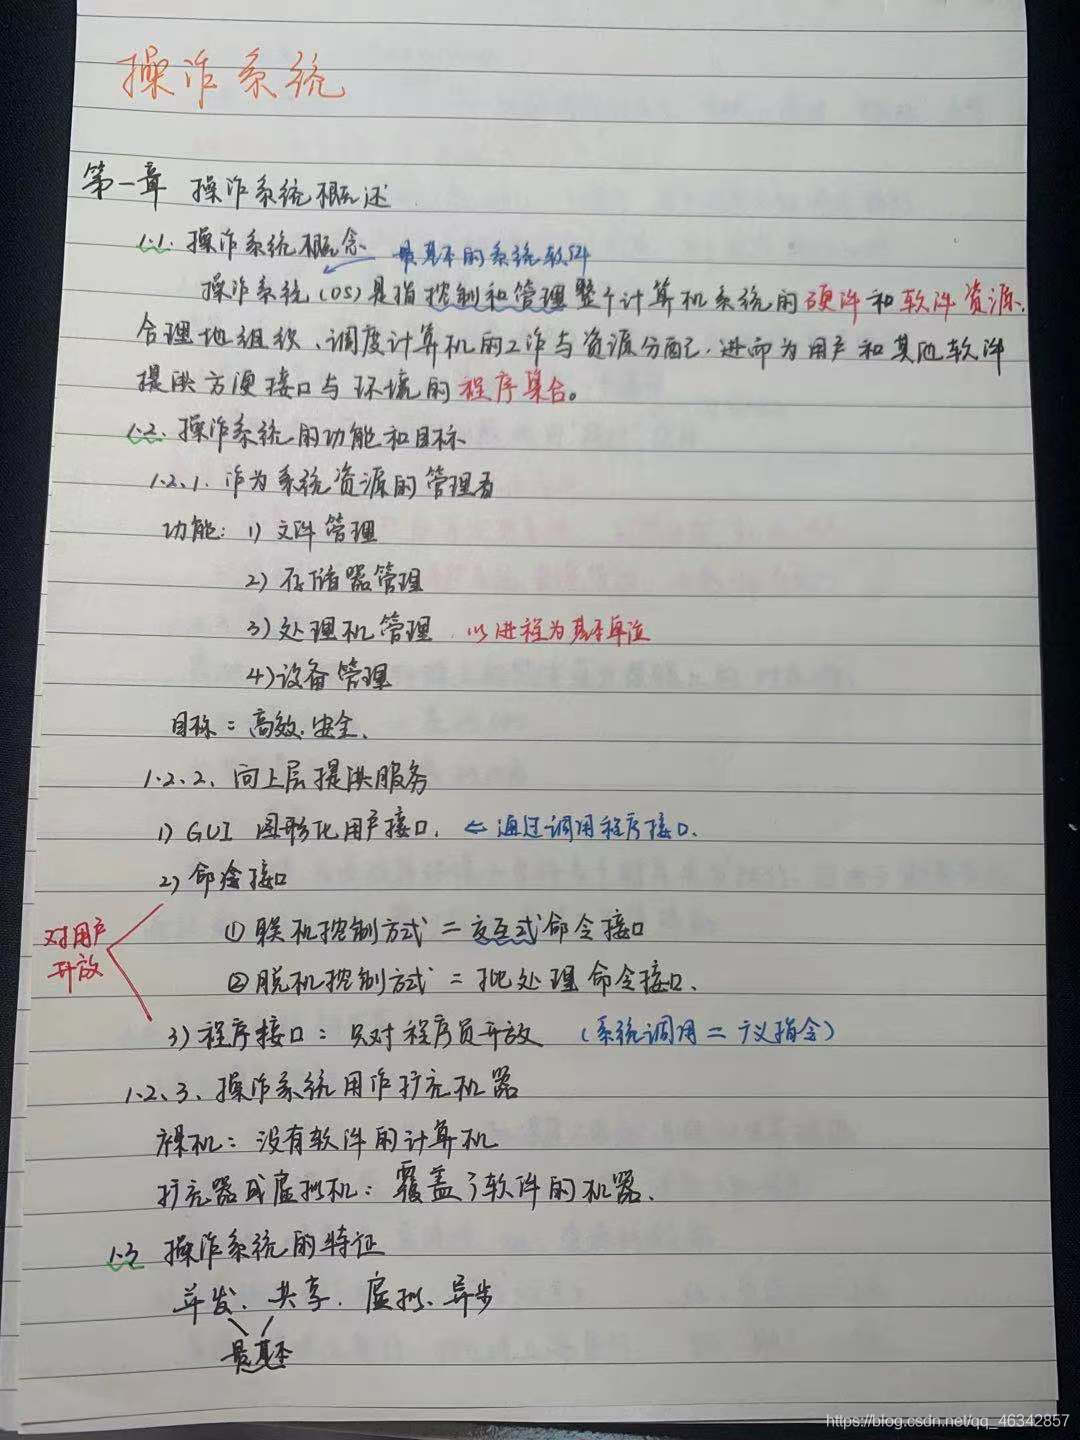 操作系统
第一章 操作系统概述
1.1. 操作系统概念 最基本的系统软件
操作系统(OS)是指控制和管理整个计算机系统的硬件和软件资源,
合理地组织、调度计算机的工作与资源分配,进而为用户和其他软件
提供方便接口与环境的程序集合。
1.2. 操作系统的功能和目标
1.2.1. 作为系统资源的管理者
功能: 1) 文件管理
2) 存储器管理
3) 处理机管理. 以进程为基本单位
4) 设备管理
目标: 高效.安全.
1.2.2. 向上层提供服务
1) GUI 图形化用户接口. ← 通过调用程序接口.
2) 命令接口
① 联机控制方式 = 交互式命令接口
对用户
开放
② 脱机控制方式 = 批处理命令接口.
3) 程序接口: 只对程序员开放 (系统调用 = 广义指令)
1.2.3. 操作系统用作扩充机器
裸机: 没有软件的计算机
扩充器或虚拟机: 覆盖了软件的机器.
1.3 操作系统的特征
并发、共享、虚拟、异步
最基本
https://blog.csdn.net/qq_46342857